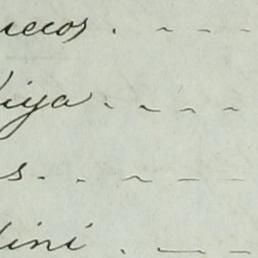 uecos . - - -
iya . - - -
s . - - -
lini . - - -